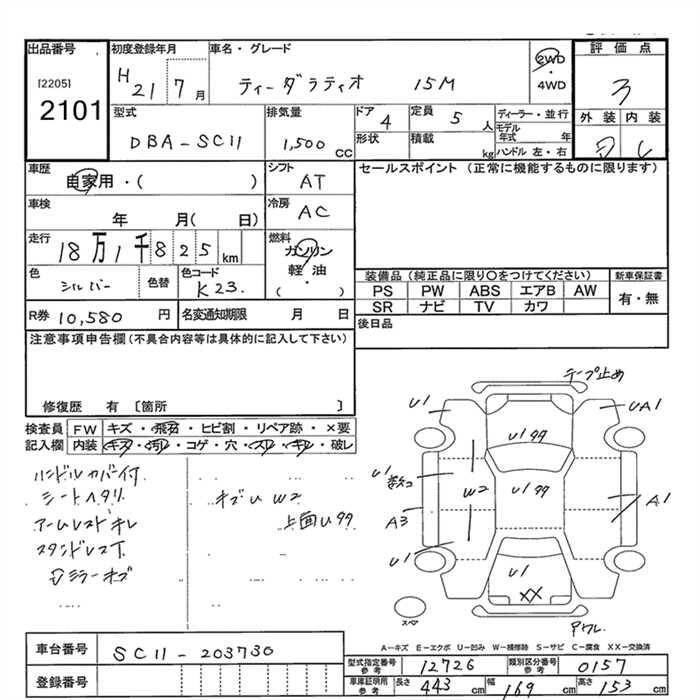 出品番号 初度登録年月 車名・グレード 2WD ・ 4WD 評価点
[2205]
2101 H 21 7月 ティーダラティオ 15M 3
型式 DBA-SC11 排気量 1,500 CC
ドア 4 定員 5 人 ディーラー・並行
形状 積載 kg モデル年式 年
ハンドル 左・右
外装 内装
車歴 自家用・( ) シフト AT
セールスポイント (正常に機能するものに限ります)
車検 年 月( 日) 冷房 AC
走行 18万1千825km 燃料 ガソリン 軽油 ( ・ )
色 シルバー 色替 色コード K23.
装備品(純正品に限り○をつけてください) 新車保証書
PS PW ABS エアB AW 有・無
SR ナビ TV カワ
R券 10,580 円 名変通知期限 月 日
後日品
注意事項申告欄(不具合内容等は具体的に記入して下さい)
修復歴 有 〔箇所 〕
検査員 FW キズ・飛石・ヒビ割・リペア跡・×要
記入欄 内装 キズ・汚れ・コゲ・穴・スレ・キレ・破レ
ハンドルカバー付
シートヘタリ
アームレストキレ
スタンドレス
ミラーキズ
キズU W2
上面Uタタ
テープ止め
U1 UA1
Uタタ
U1
W2
Uタタ
A1
A3
U1
U1
XX
スペア
Pワレ
A-キズ E-エクボ U-凹み W-補修跡 S-サビ C-腐食 XX-交換済
車台番号 SC11-203730
型式指定番号 参考 12726 類別区分番号 参考 0157
登録番号
車庫証明用 参考 長さ 443 cm 幅 169 cm 高さ 153 cm